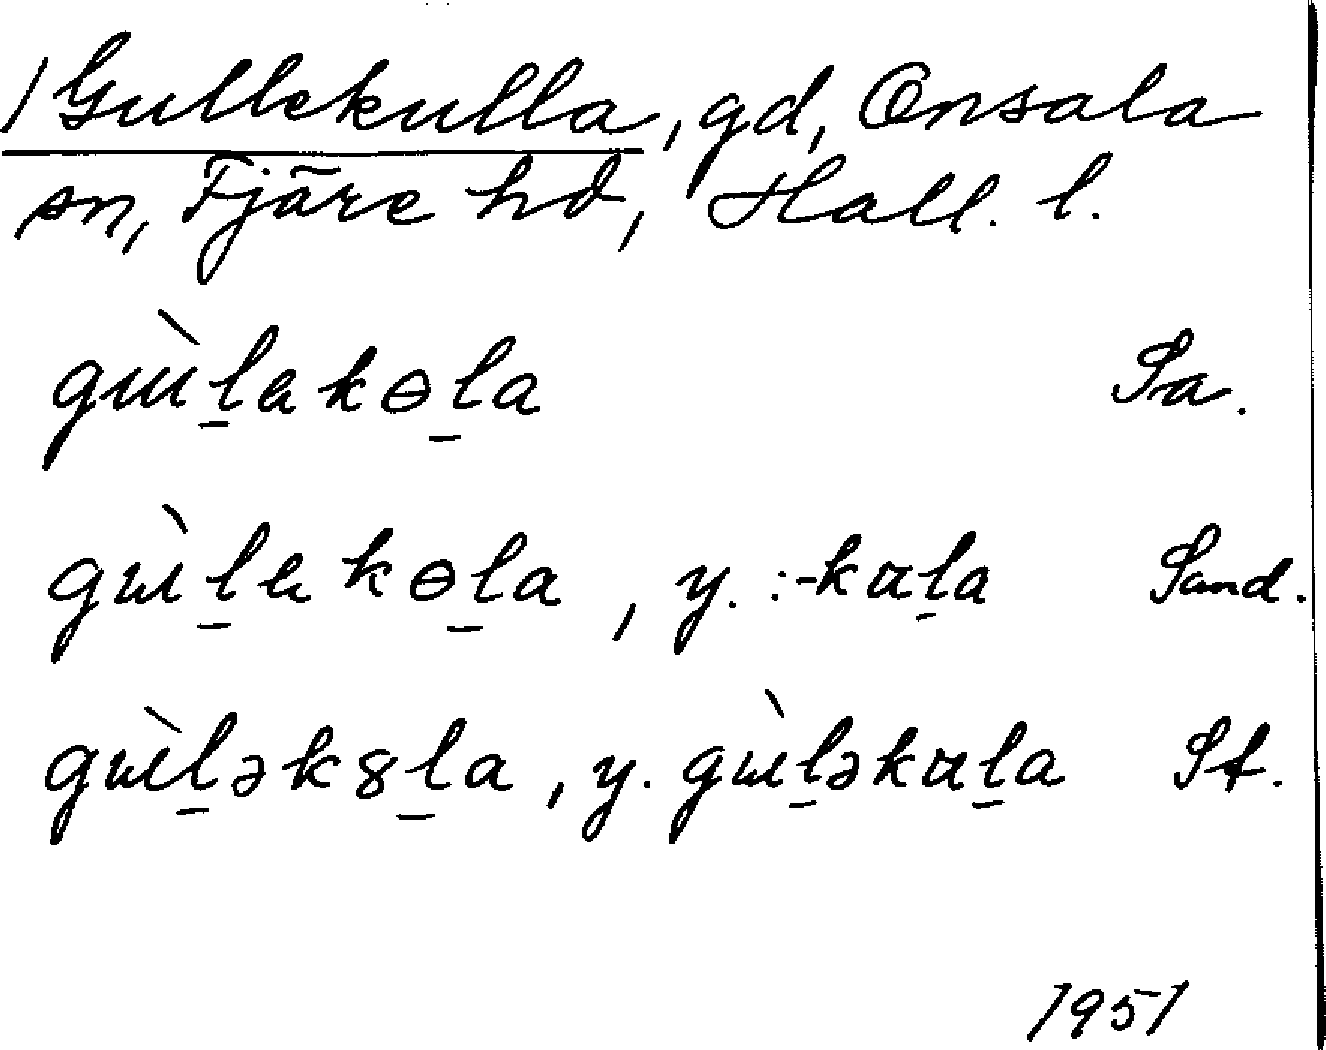 /Gullekulla, gd, Onsala
sn, Fjäre hd, Hall. l.
gɯ̀l̲ɐkɵl̲a Sa.
gɯ̀l̲ɐkɵl̲a, y.:-kul̲a Sand.
gɯ̀l̲ək8l̲a, y. gɯ̀l̲əkul̲a St.
1951